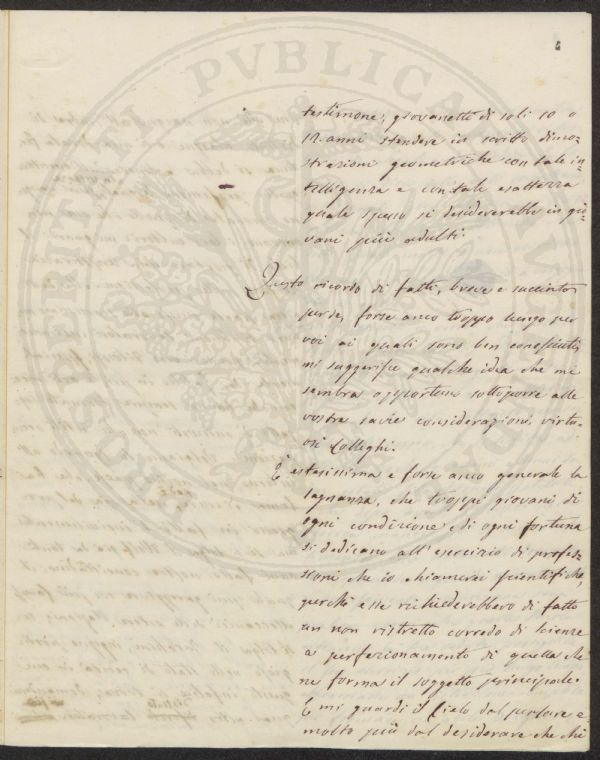 testimone, giovanetti di soli 10 o
12 anni stendere in scritto dimo=
strazioni geometriche con tale in=
telligenza e con tale esattezza
quale spesso si desiderebbe in gio=
vani più adulti.
Questo ricordo di fatti, breve e succinto
per se, forse anco troppo lungo per
voi ai quali sono ben conosciuti,
mi suggerisce qualche idea che mi
sembra opportuno sottoporre alle
vostre savie considerazioni, virtu-
osi Colleghi.
È estesissima e forse anco generale la
lagnanza, che troppi giovani di
ogni condizione e di ogni fortuna
si dedicano all'esercizio di profes=
sioni che io chiamerei scientifiche,
perchè esse richiederebbero di fatto
un non ristretto corredo di scienze
a perfezionamento di quella che
ne forma il soggetto principale.
E mi guardi il Cielo dal pensare e
molto più dal desiderare che chi
PROSPERITATI PVBLICAE